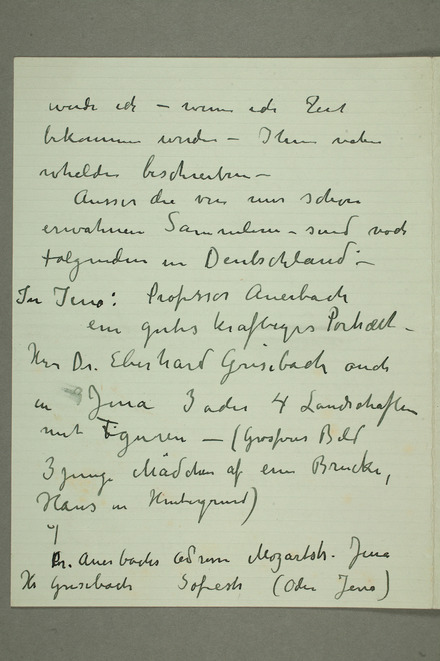 werde ich – wenn ich Zeit
bekommen werde – Ihnen
beschreiben –
Ausser die von mir schon
erwähnen Sammlern – sind noch
folgenden in Deutschland:–
In Jena: Professor Auerbach
ein gutes kraftiges Porträt –
Herr Dr. Eberhard Grisebach auch
in Jena 3 oder 4 Landschaften
mit Figuren – (Grosses Bild
3 junge Mädchen af ein Brücke,
Haus in Hintergrund)
Dr. Auerbachs Adresse Mozartstr. Jena
Hr Grisebach (Oder Jena)